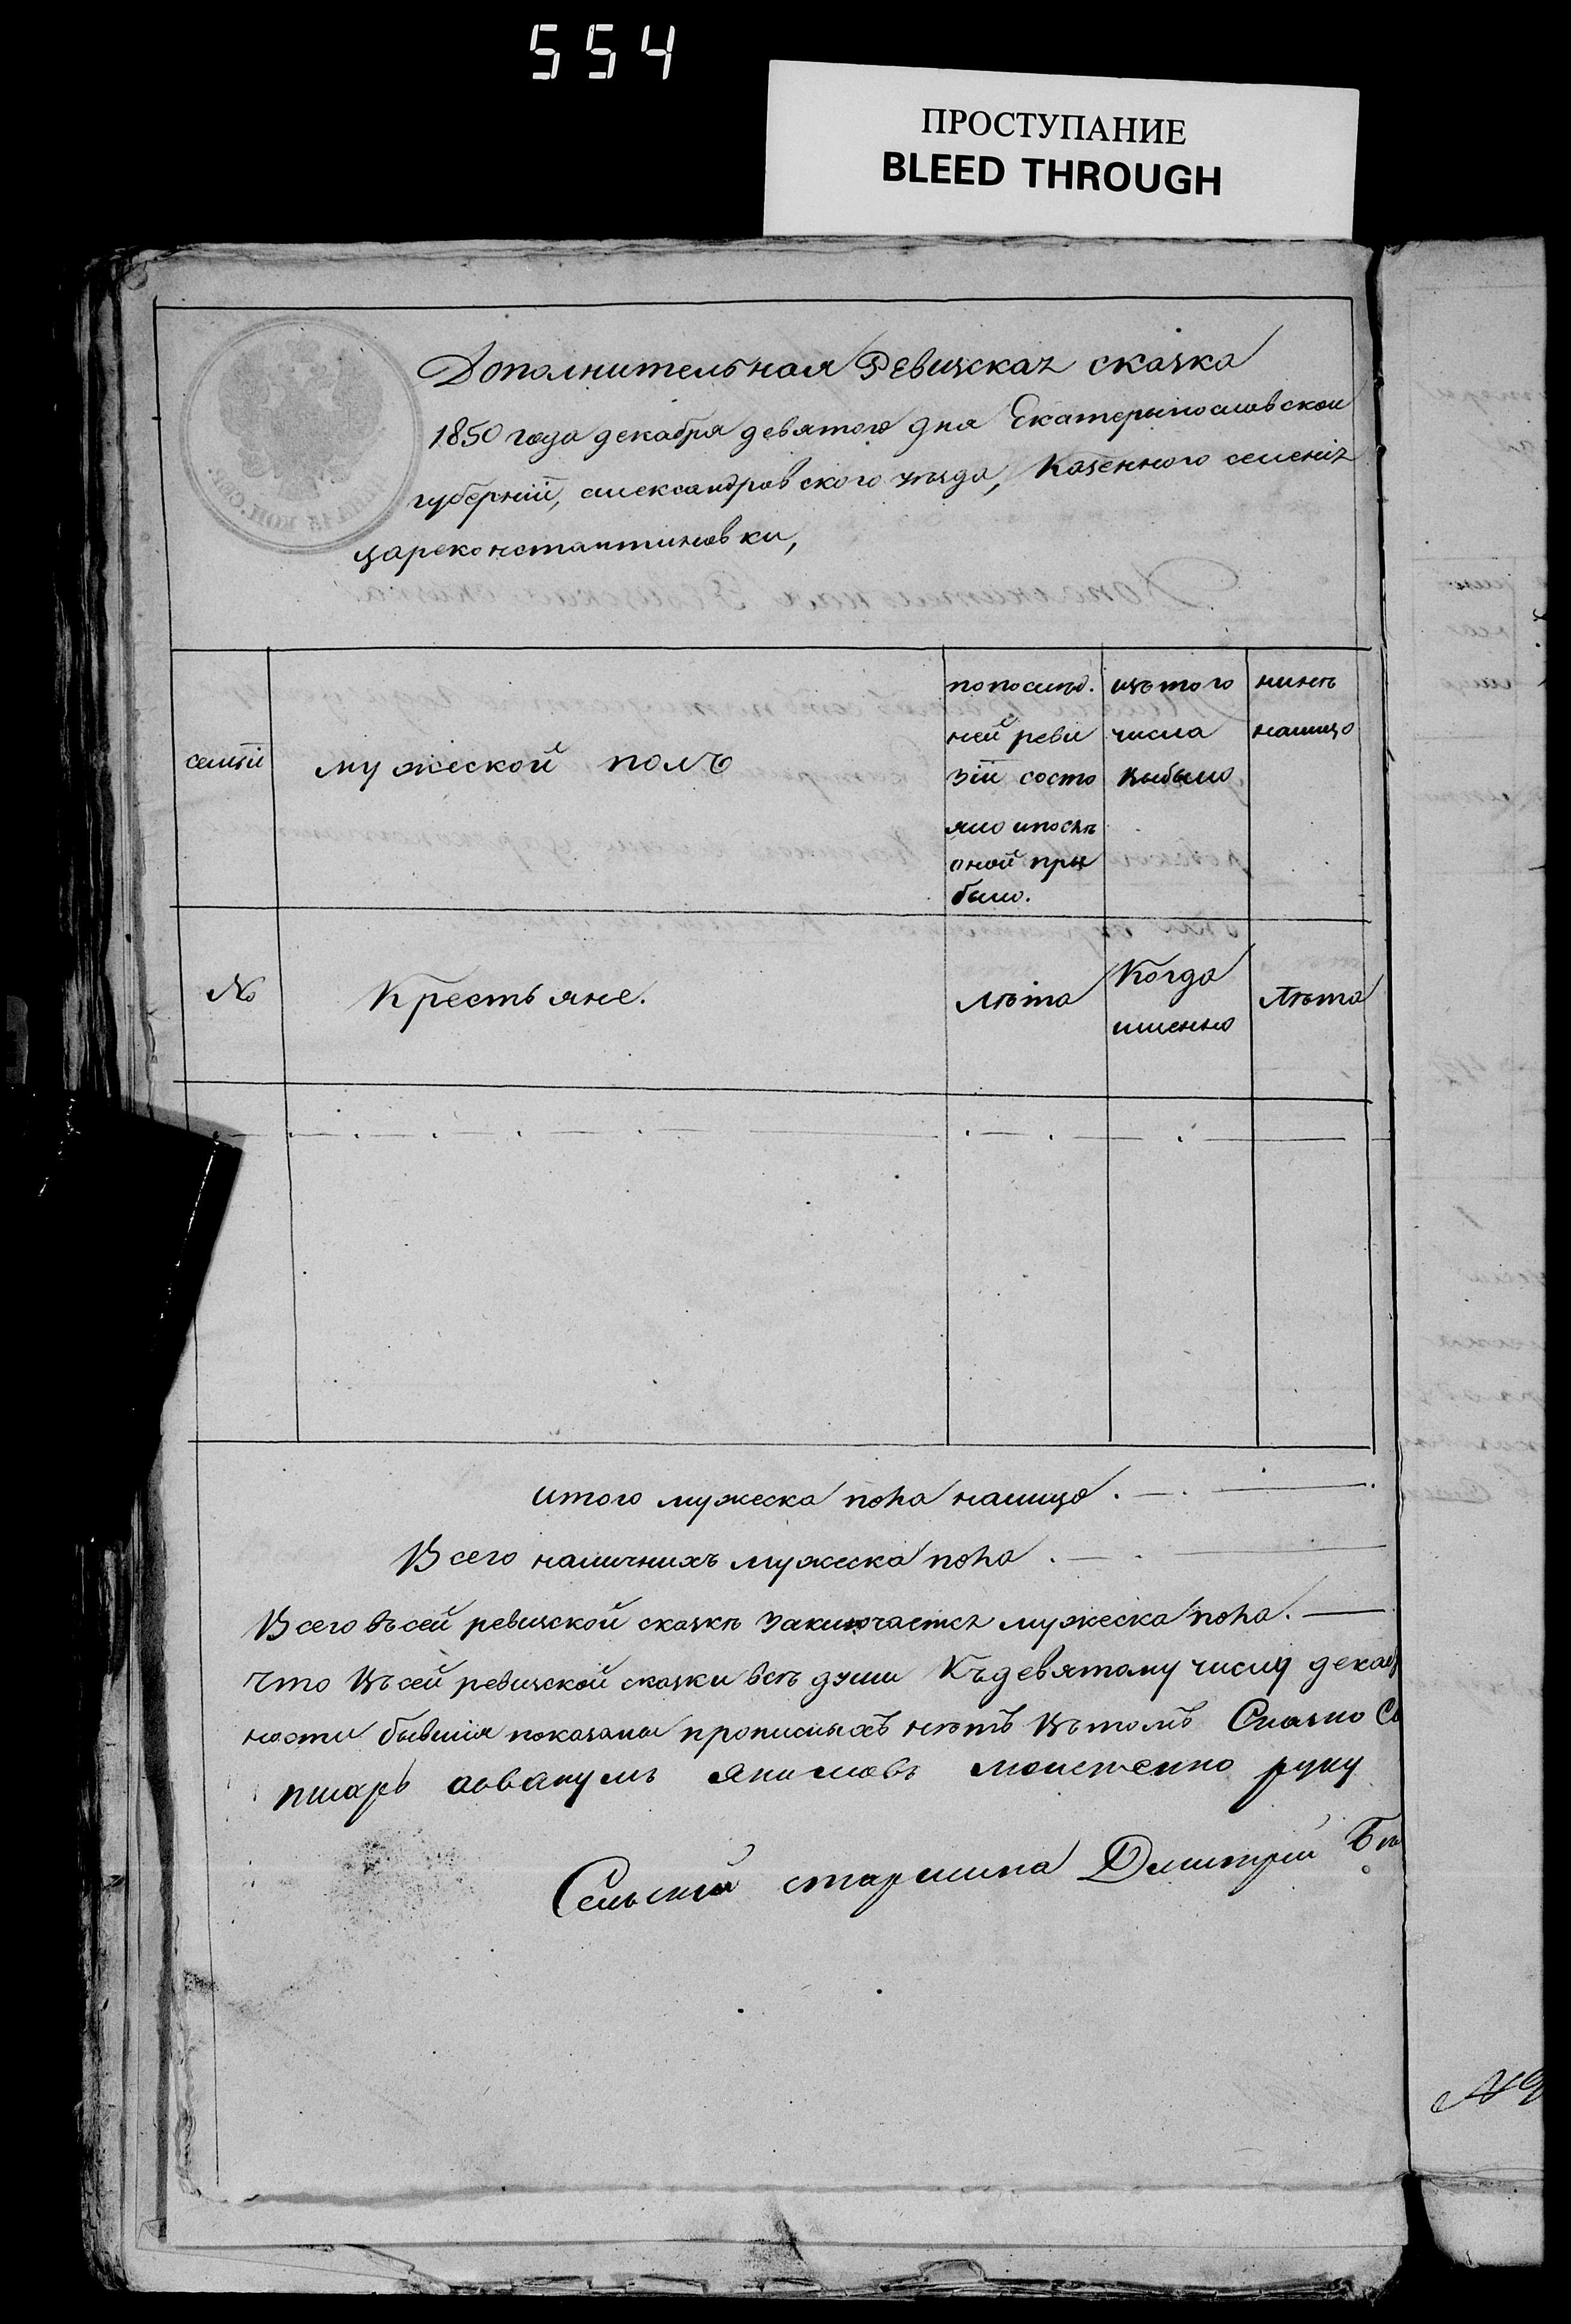 554
ПРОСТУПАНИЕ
BLEED THROUGH
Дополнительная Ревизская сказка
1850 года декабря девятого дня Екатеринославской
губерніи, александровского уѣзда, Казенного селенія
цареконстантиновки,
семіи
мужеской полъ
по послѣд.
ней реви
зіи состо
яло и послѣ
оной при
было.
изъ того
числа
выбыло
нинѣ
налицо
№
Крестьяне.
лѣта
Когда
именно
Лѣта
итого мужеска пола налицо . — . —
Всего наличнихъ мужеска пола . — . —
Всего въ сей ревизской сказкѣ заключается мужеска пола. —
Что въ сей ревизской сказки всѣ души Къ девятому числу декаб
ности бывшія показаны прописныхъ нѣтъ въ томъ
писарь аввакумъ руку
Сельскій старшина Димитрій